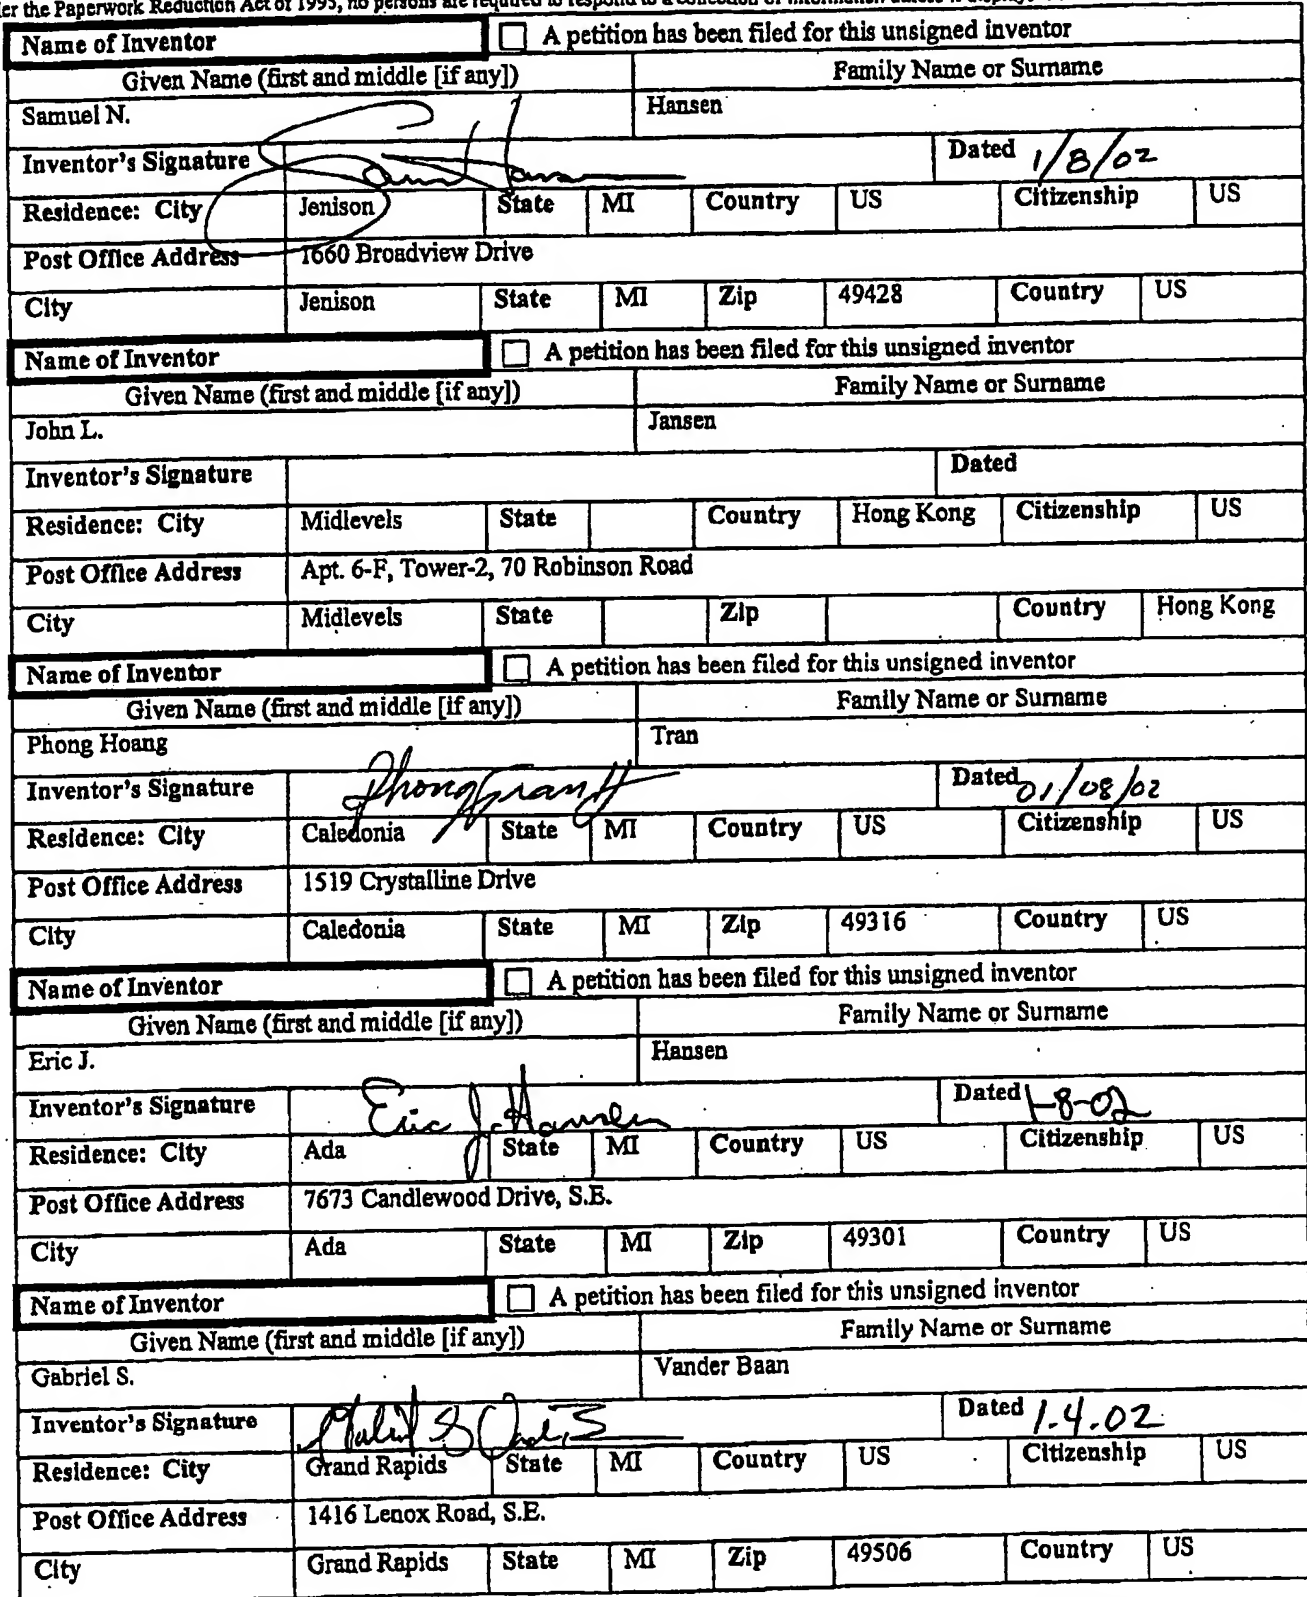 er the Paperwork Reduction Act of 1995, no persons are required to respond to a collection of information unless it displays
Name of Inventor ☐ A petition has been filed for this unsigned inventor
Given Name (first and middle [if any]) Family Name or Surname
Samuel N. Hansen
Inventor's Signature Dated 1/8/02
Residence: City Jenison State MI Country US Citizenship US
Post Office Address 1660 Broadview Drive
City Jenison State MI Zip 49428 Country US
Name of Inventor ☐ A petition has been filed for this unsigned inventor
Given Name (first and middle [if any]) Family Name or Surname
John L. Jansen
Inventor's Signature Dated
Residence: City Midlevels State Country Hong Kong Citizenship US
Post Office Address Apt. 6-F, Tower-2, 70 Robinson Road
City Midlevels State Zip Country Hong Kong
Name of Inventor ☐ A petition has been filed for this unsigned inventor
Given Name (first and middle [if any]) Family Name or Surname
Phong Hoang Tran
Inventor's Signature Phong Tran H Dated 01/08/02
Residence: City Caledonia State MI Country US Citizenship US
Post Office Address 1519 Crystalline Drive
City Caledonia State MI Zip 49316 Country US
Name of Inventor ☐ A petition has been filed for this unsigned inventor
Given Name (first and middle [if any]) Family Name or Surname
Eric J. Hansen
Inventor's Signature Eric J. Hansen Dated 1-8-02
Residence: City Ada State MI Country US Citizenship US
Post Office Address 7673 Candlewood Drive, S.E.
City Ada State MI Zip 49301 Country US
Name of Inventor ☐ A petition has been filed for this unsigned inventor
Given Name (first and middle [if any]) Family Name or Surname
Gabriel S. Vander Baan
Inventor's Signature Dated 1.4.02
Residence: City Grand Rapids State MI Country US Citizenship US
Post Office Address 1416 Lenox Road, S.E.
City Grand Rapids State MI Zip 49506 Country US